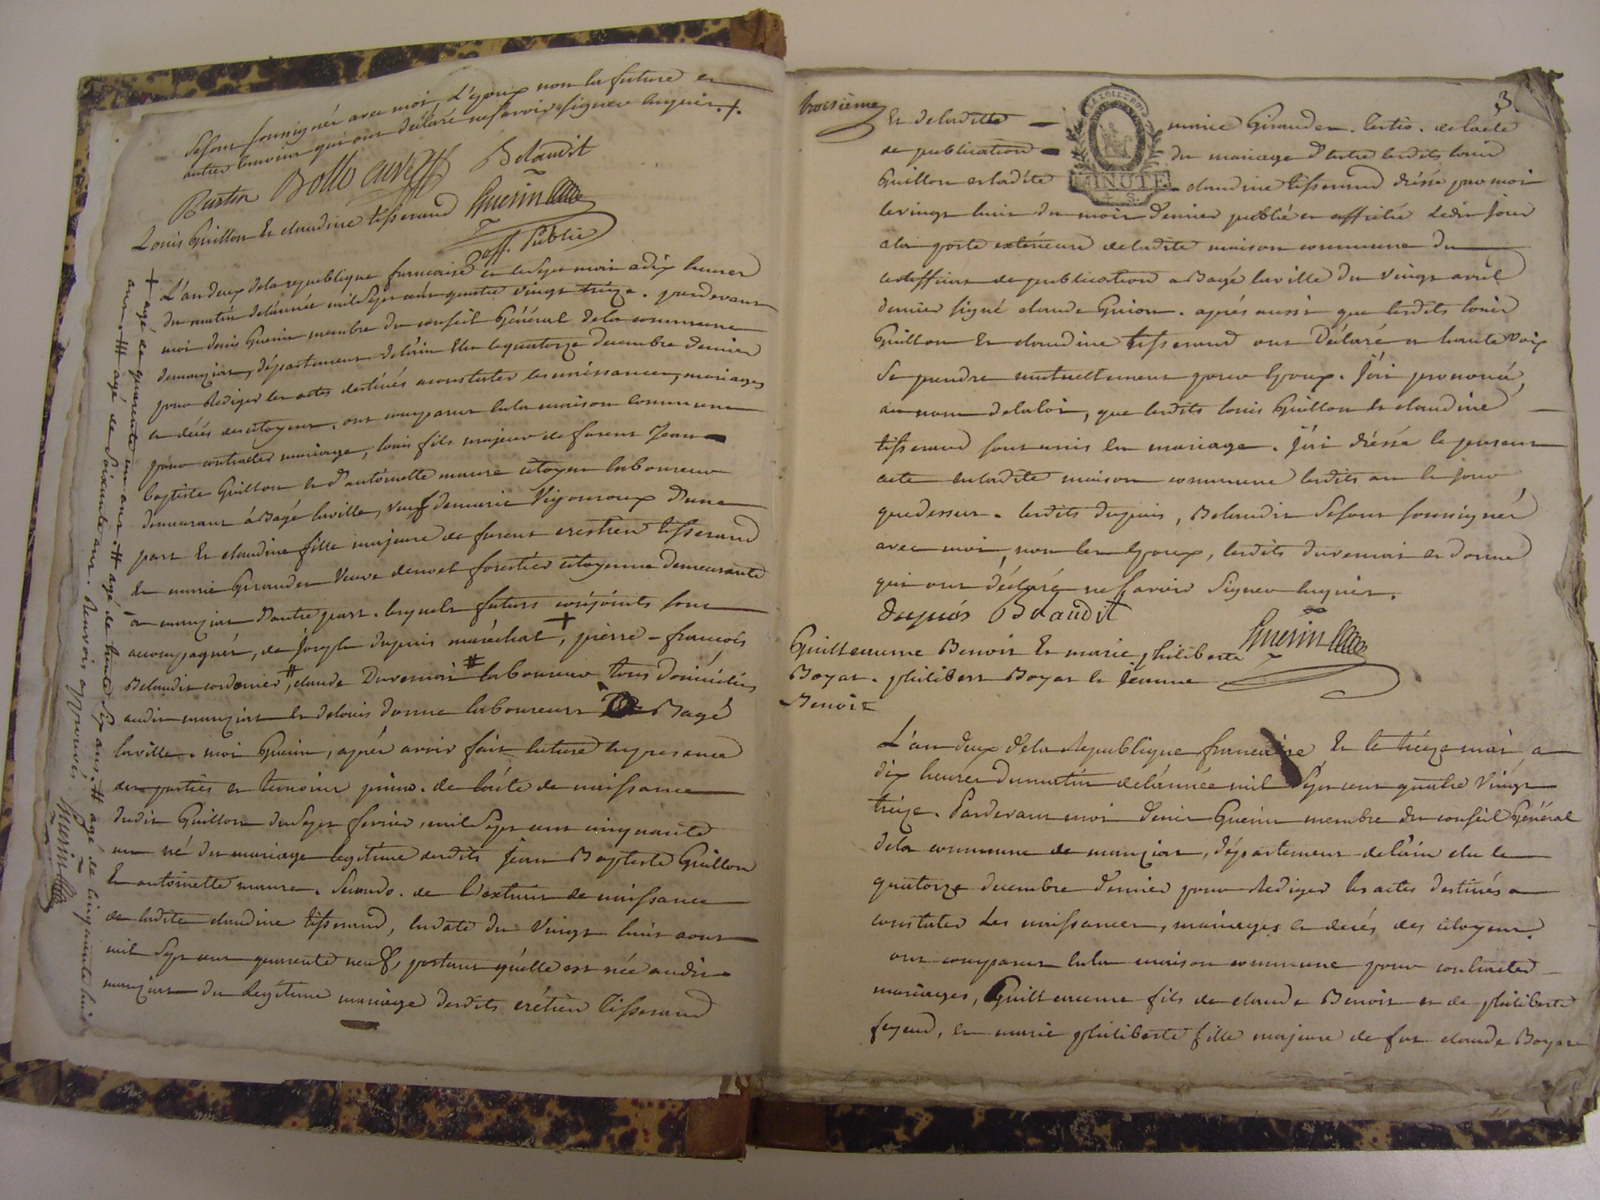 se sont soussignés avec moi, l'epoux non la future et
autres temoins qui ont déclaré ne savoir signer enquis. +.
Bollo Belaudit
Louis Guillon Et claudine tisserand Guerin
off. Public
L'an deux dela republique francaise et le sept mai a dix heures
du matin de lannée mil sept cent quatre vingt treize. pardevant
moi denis Guerin membre du conseil Général dela commune
demanziat, département delain Elu le quatorze decembre dernier
pour Rediger les actes destinés a constater les naissances, mariages
et décès des citoyens, ont comparus en la maison commune
pour contracter mariage, louis fils majeur de furent Jean
baptiste Guillon et d'antoinette maure citoyen laboureur
demeurant à Bagé laville, veuf de marie Vigouroux d'une
part Et claudine fille majeure de furent crestien tisserand
et marie Giraudet Veuve de noel forestier citoyenne demeurante
a manziat d'autre part. lesquels futurs conjoints sont
accompagnés, de joseph dupuis maréchal +, pierre - françois
Belaudit cordonier #, claude Duvernoi # laboureur tous domiciliés
audit manziat Et delouis donne laboureur De Bagé
laville. moi Guerin, après avoir fait lecture en presence
des parties et temoins primo. de l'acte de naissance
dudit Guillon du sept fevrier, mil sept cent cinquante
un né du mariage legitime desdits Jean Baptiste Guillon
Et antoinette maure. Secondo. de l'extrait de naissance
de ladite claudine tisserand, en date du Vingt huit aout
mil sept cent quarente neuf, portant quelle est née audit
manziat du legitime mariage desdits crétien tisserand
+ agé de quarente un ans. # agé de trente sept ans. # agé de cinquante huit
ans. # agé de soixante ans. Renvois approuvés. Guerin
troisieme
3.
MINUTE
Et deladitte marie Giraudet. tertio. de lacte
de publication du mariage d'Entre lesdits louis
Guillon et ladite claudine tisserand dréssé par moi
le vingt huit du mois dernier publié et affiché ledit jour
a la porte extérieure de ladite maison commune du
certifficat de publication a Bagé laville du Vingt avril
dernier signé claude Guion. après aussi que lesdits louis
Guillon Et claudine tisserand ont Déclaré a haute Voix
se prendre mutuellement pour Epoux. J'ai prononcé,
au nom de la loi, que lesdits louis Guillon Et claudine
tisserand sont unis en mariage. J'ai dréssé le present
acte en ladite maison commune lesdits an Et jour
que dessus. lesdits dupuis, Belaudit se sont soussignés
avec moi, non les Epoux, lesdits duvernoi et donne
qui ont déclaré ne savoir signer enquis.
dupuis Belaudit
Guerin
Guillaeume Benoit Et marie philiberte
Boyat. philibert Boyat Et Jeanne
Benoit
L'an deux dela Republique francaise Et le treize mai a
dix heures du matin de lannée mil sept cent quatre Vingt
treize. Pardevant moi denis Guerin membre du conseil Général
dela commune de manziat, département delain elu le
quatorze decembre dernier pour Rediger les actes destinés a
constater Les naissances, mariages et décès des citoyens.
ont comparus en la maison commune pour contracter
mariages, Guillaeume fils de claude Benoit et de philiberte
feyeud, et marie philiberte fille majeure de fut claude Boyat